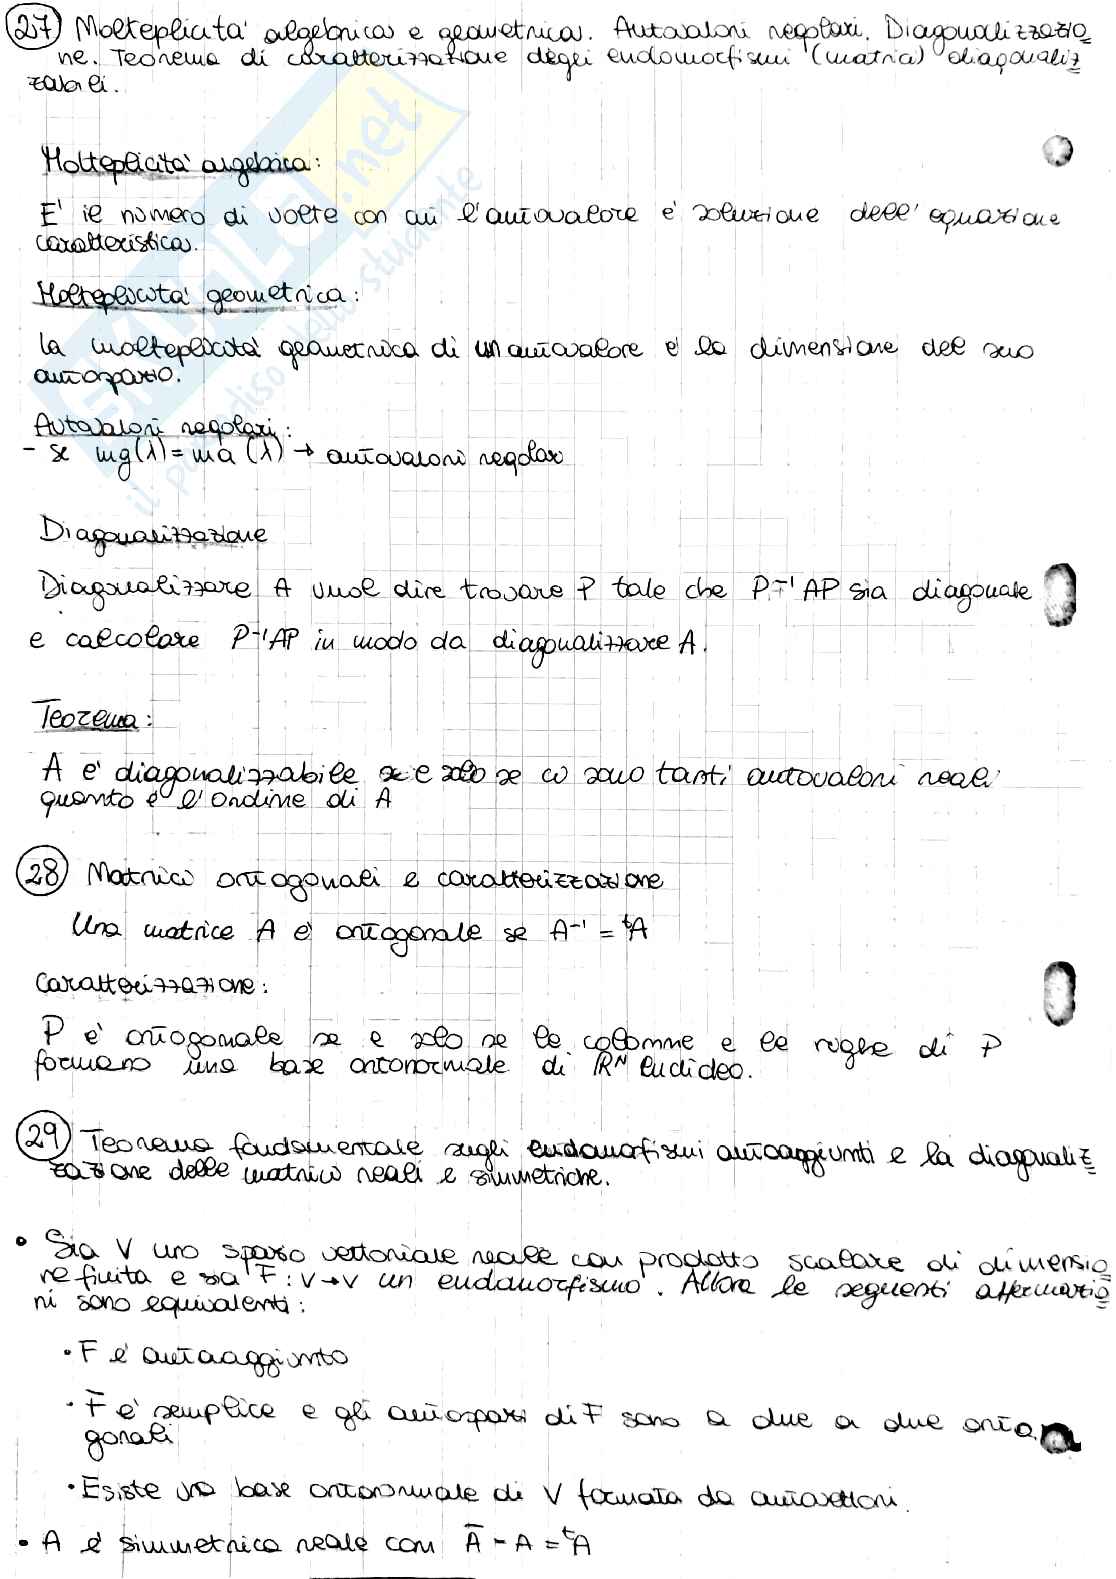 27 Molteplicità algebrica e geometrica. Autovalori regolari. Diagonalizzazio
ne. Teorema di caratterizzazione degli endomorfismi (matrici) diagonaliz
zabili.
Molteplicità algebrica:
E' il numero di volte con cui l'autovalore è soluzione dell'equazione
caratteristica.
Molteplicità geometrica:
la molteplicità geometrica di un autovalore è la dimensione del suo
autospazio.
Autovalori regolari:
- se mg(λ) = ma (λ) → autovalori regolari
Diagonalizzazione
Diagonalizzare A vuol dire trovare P tale che P⁻¹AP sia diagonale
e calcolare P⁻¹AP in modo da diagonalizzare A.
Teorema:
A è diagonalizzabile se e solo se ci sono tanti autovalori reali
quanto è l'ordine di A
28 Matrici ortogonali e caratterizzazione
Una matrice A è ortogonale se A⁻¹ = ᵗA
Caratterizzazione:
P è ortogonale se e solo se le colonne e le righe di P
formano una base ortonormale di ℝᴺ Euclideo.
29 Teorema fondamentale sugli endomorfismi autoaggiunti e la diagonaliz
zazione delle matrici reali e simmetriche.
• Sia V uno spazio vettoriale reale con prodotto scalare di dimensio
ne finita e sia F: V→V un endomorfismo. Allora le seguenti affermazio
ni sono equivalenti:
• F è autoaggiunto
• F è semplice e gli autospazi di F sono a due a due orto
gonali
• Esiste una base ortonormale di V formata da autovettori.
• A è simmetrica reale con Ā - A = ᵗA
SKUOLA.net
il paradiso dello studente